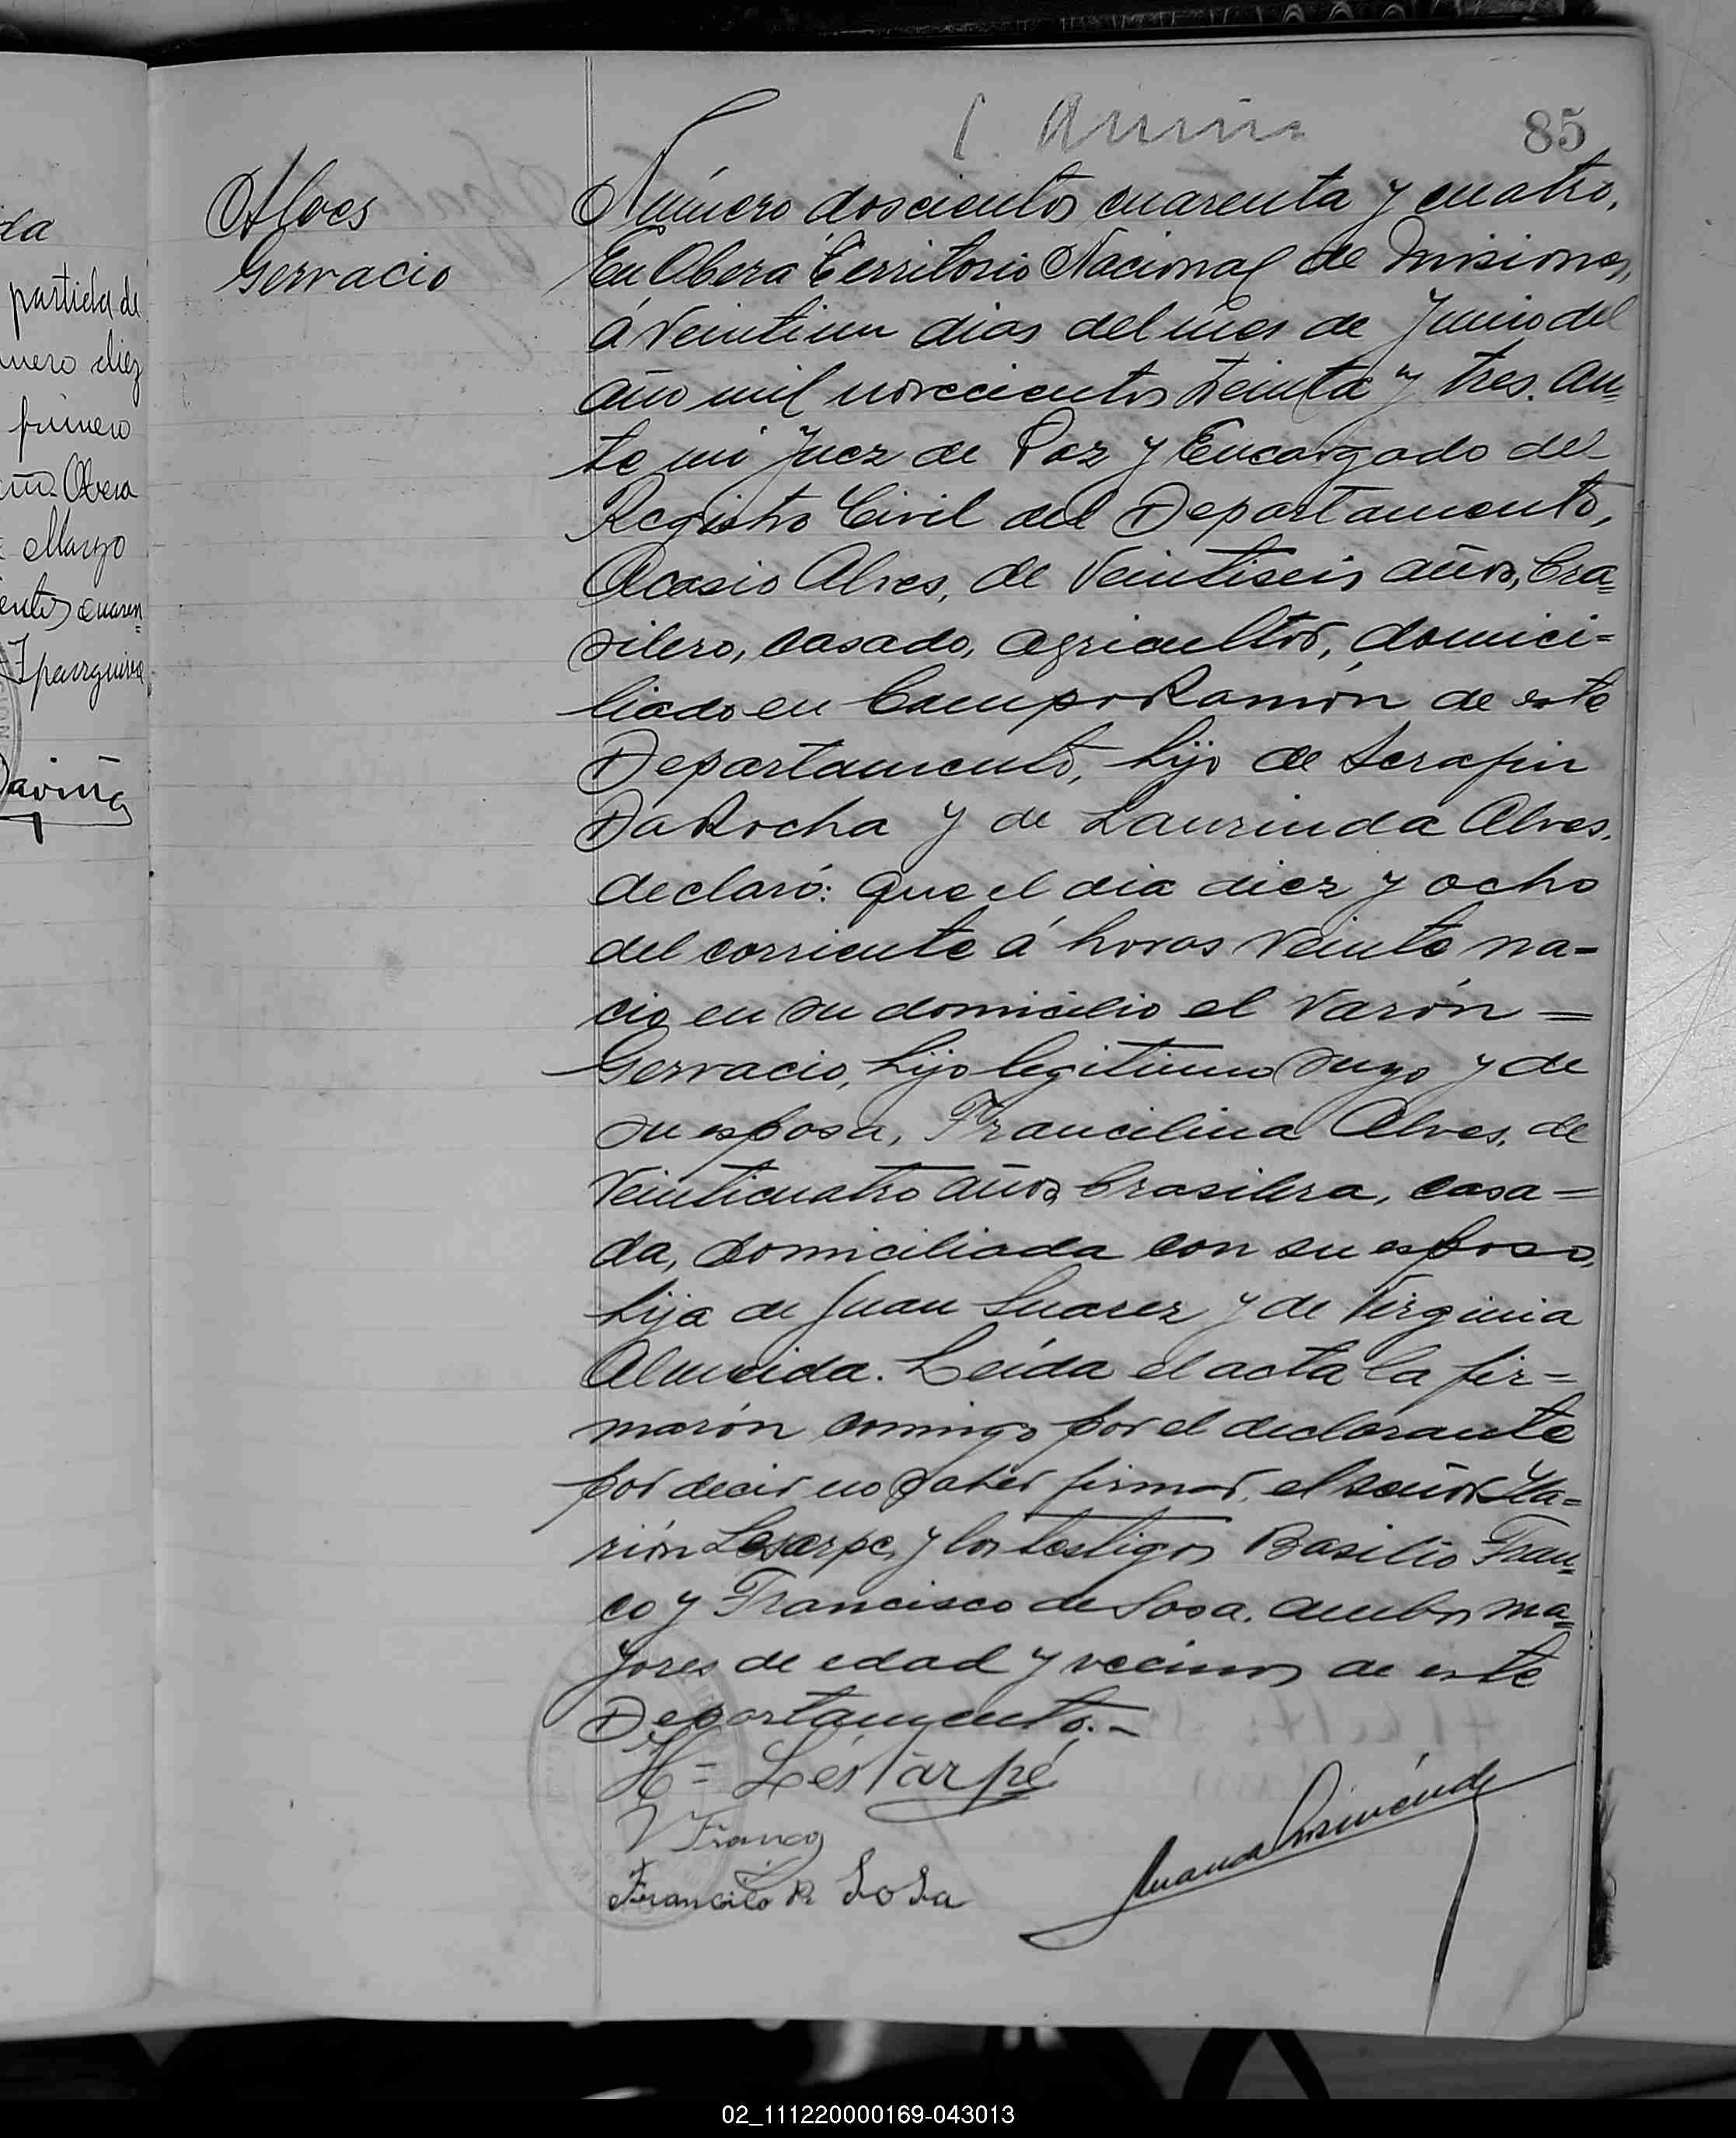 85
Alves
Gervacio
Número doscientos cuarenta y cuatro.
En Oberá Territorio Nacional de Misiones,
á veintiun dias del mes de Junio del
año mil novecientos treinta y tres. an=
te mi Juez de Paz y Encargado del
Registro Civil del Departamento,
Acasio Alves, de veintiseis años, bra=
silero, casado, agricultor, domici=
liado en Campo Ramón de este
Departamento, hijo de Serafin
Da Rocha y de Laurinda Alves.
declaró: que el dia diez y ocho
del corriente á horas veinte na-
cio en su domicilio el varón =
Gervacio, hijo legitimo suyo y de
su esposa, Francilina Alves, de
veinticuatro años brasilera, casa=
da, domiciliada con su esposo,
hija de Juan Suarez y de Virginia
Almeida. Leída el acta la fir=
marón conmigo por el declarante
por decir no saber firmar, el señor Ila=
rión Lestarpe, y los testigos Basilio Fran=
co y Francisco de Sosa. ambos ma=
yores de edad y vecinos de este
Departamento.-
H= Léstarpé
V Franco
Francisco R SoSa
da
partida de
mero diez
primero
Obera
Marzo
entos cuaren=
Ipanguirre
Daviña
02_111220000169-043013